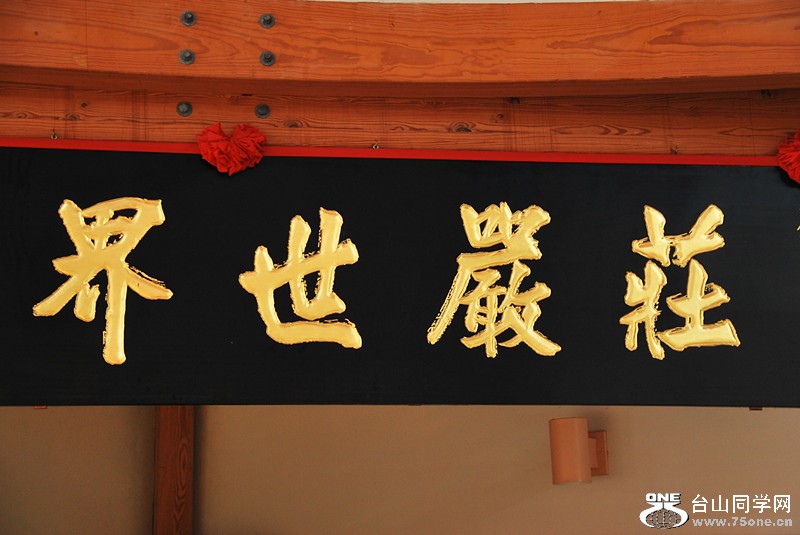 莊嚴世界
ONE
台山同学网
www.75one.cn